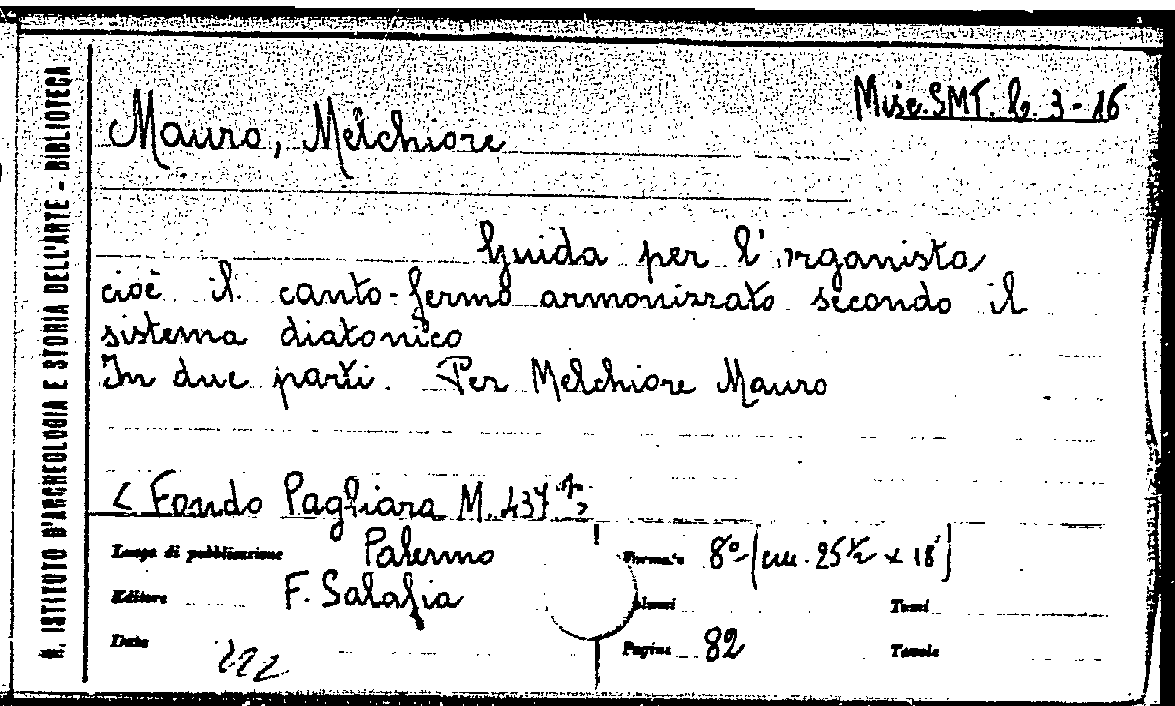 R. ISTITUTO D'ARCHEOLOGIA E STORIA DELL'ARTE - BIBLIOTECA
Misc. SMT. b. 3-16
Mauro, Melchiore
Guida per l'organista
cioè il canto-fermo armonizzato secondo il
sistema diatonico
In due parti. Per Melchiore Mauro
< Fondo Pagliara M. 437 >
Luogo di pubblicazione Palermo
Formato 8° (cm. 25 ½ x 18)
Editore F. Salafia
Volumi
Tomi
Data
Pagine 82
Tavole